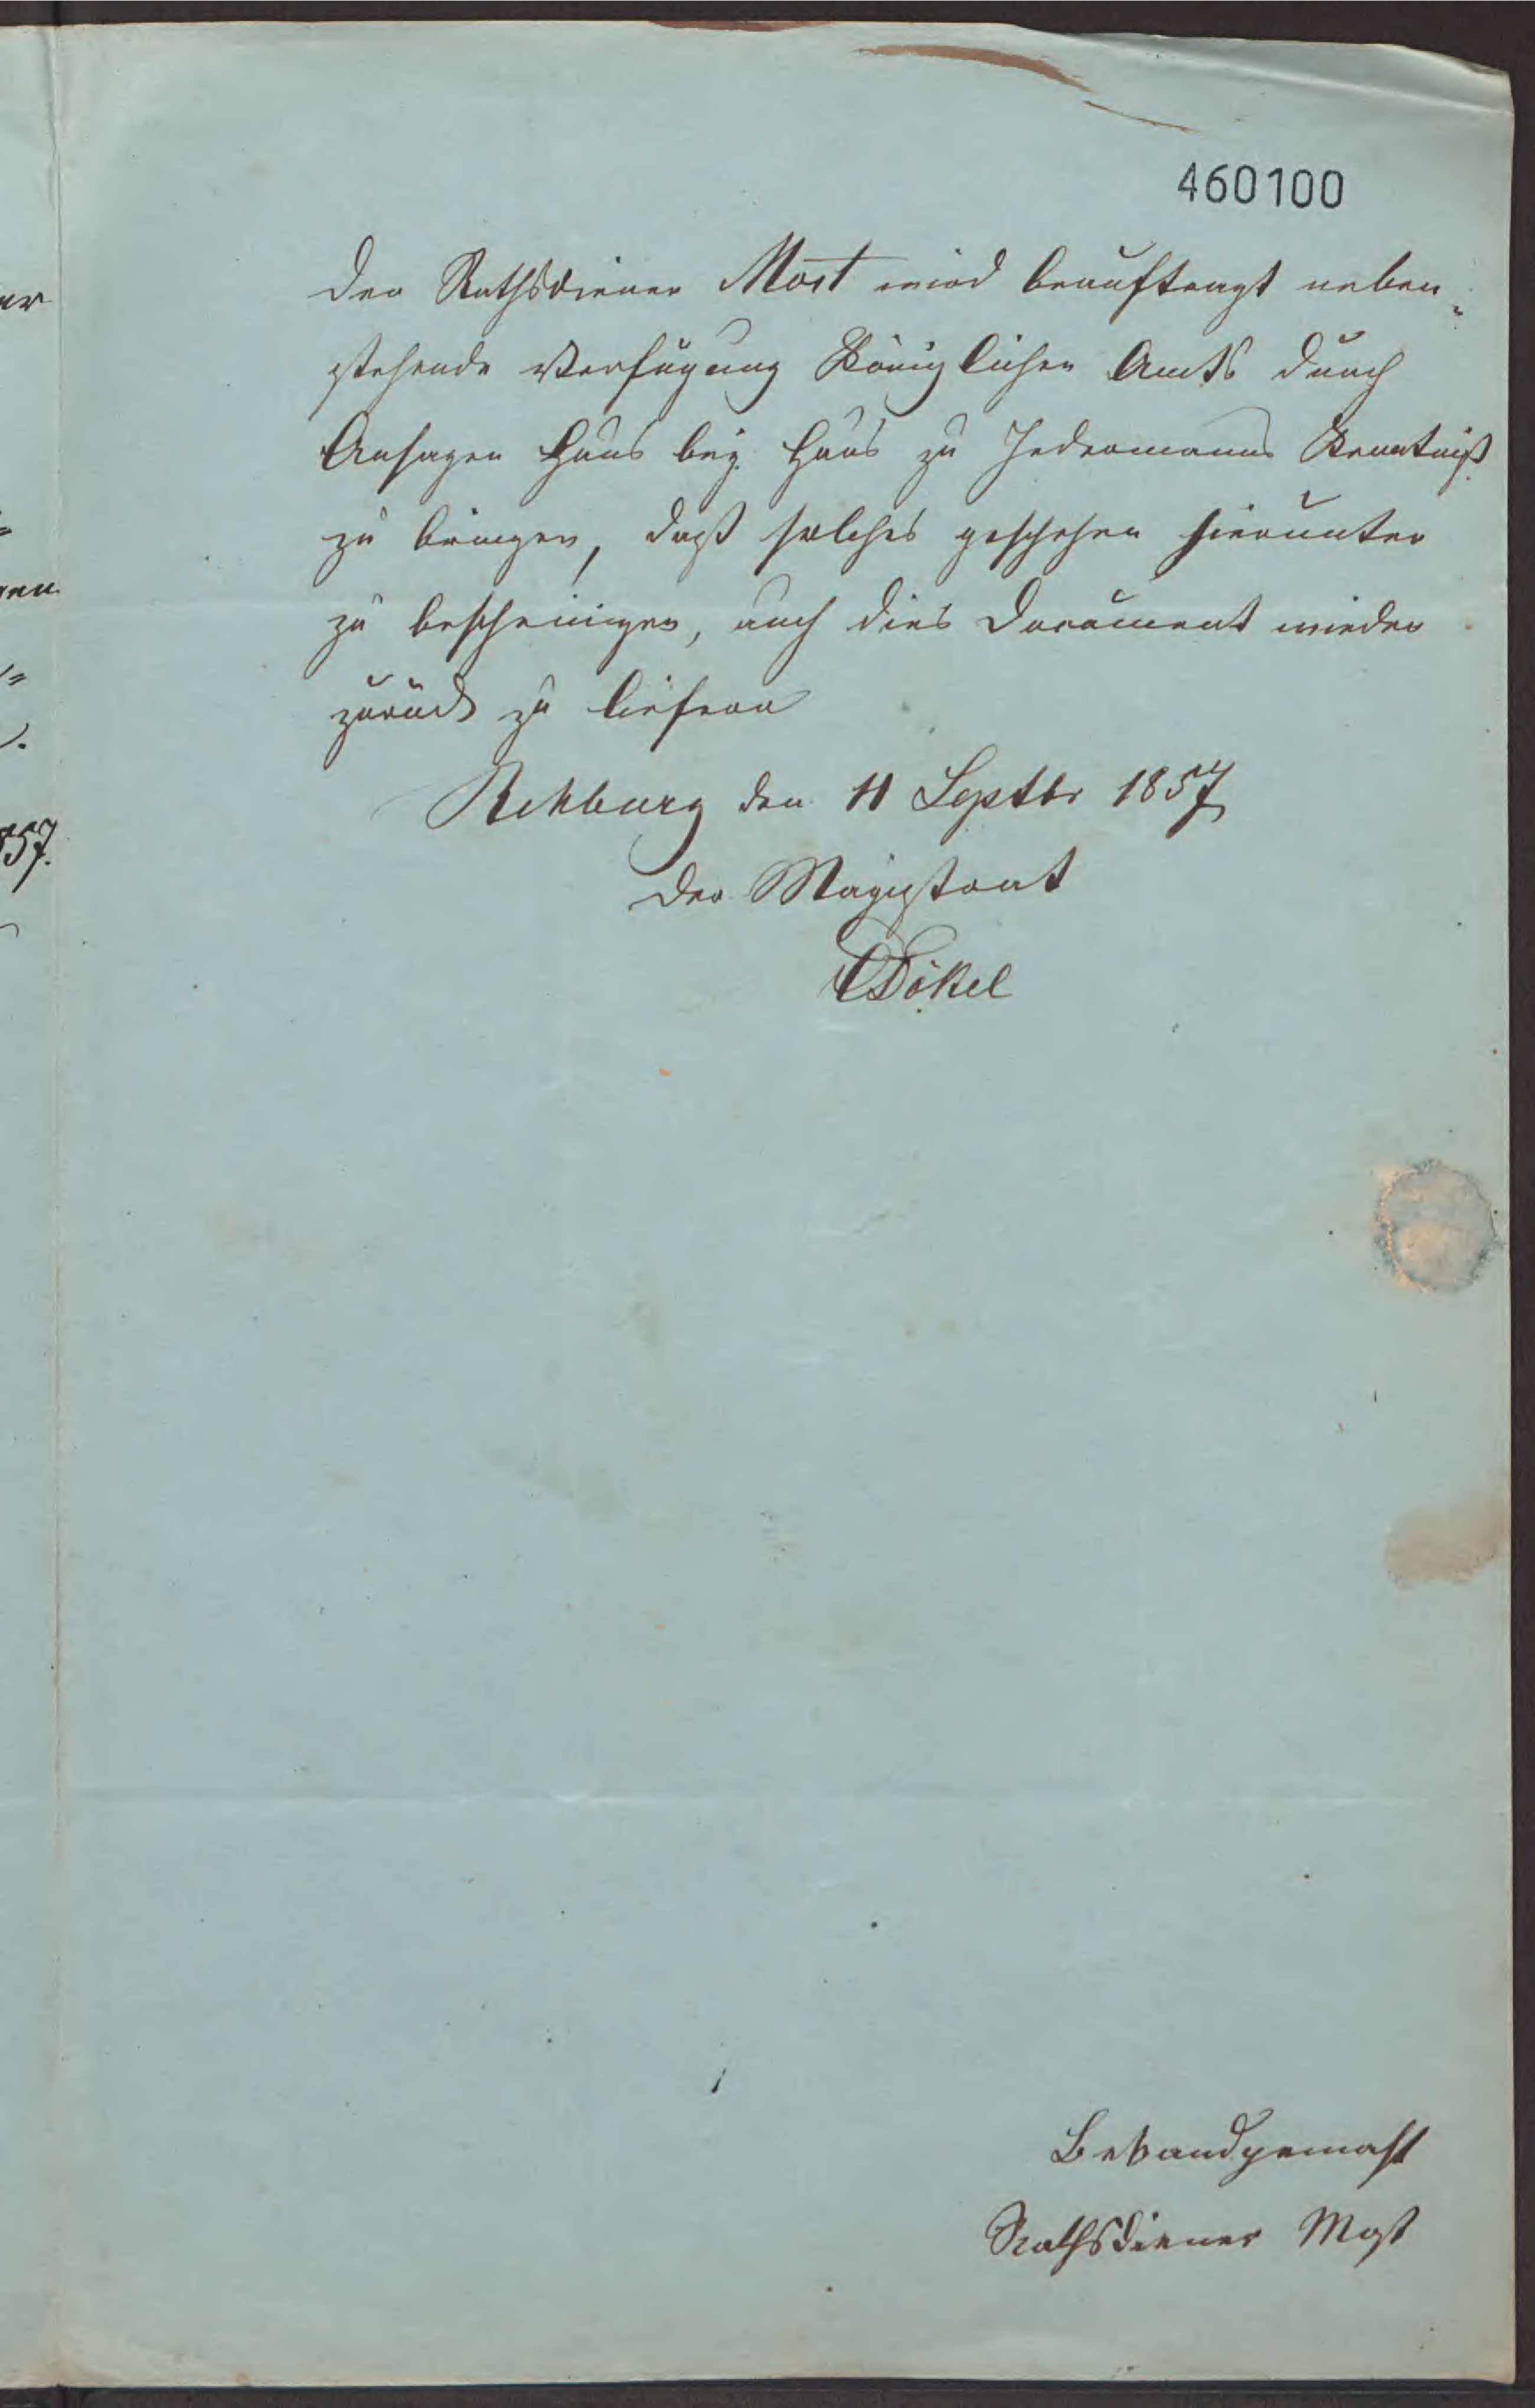 460100
Der Rathsdiener Most wird beauftragt neben-
stehende Verfügung Königlichen Amts durch
Ansagen Haus bey Haus zu Jedermanns Kenntniß
zu bringen, daß solches geschehen hierunter
zu bescheinigen, auch dies Document wieder
zurück zu liefern
Rehburg den 11 Septbr 1857
Der Magistrat
Dökel
Bekandgemaht
Rathsdiener Most
857.